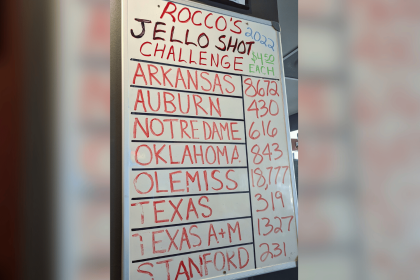 ROCCO'S
JELLO SHOT 2022
CHALLENGE $4.50 EACH
ARKANSAS 8672
AUBURN 430
NOTRE DAME 616
OKLAHOMA 843
OLEMISS 18,777
TEXAS 319
TEXAS A+M 1327
STANFORD 231